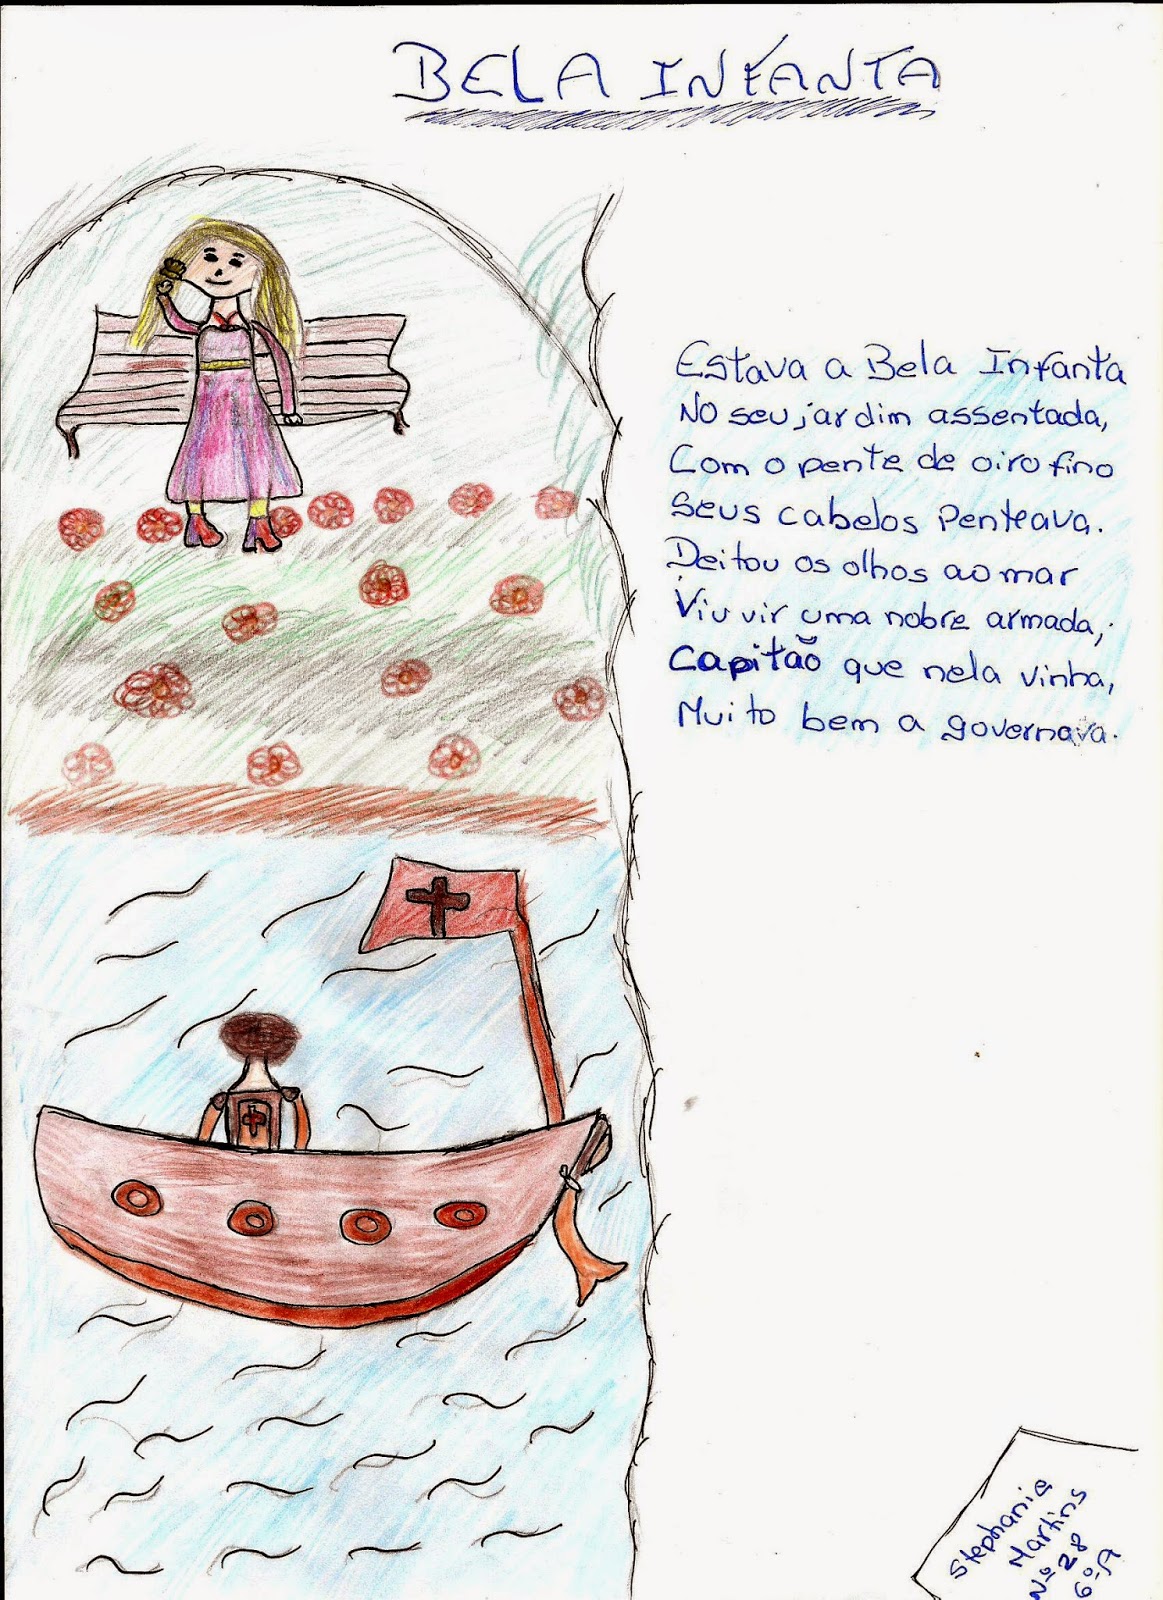 BELA INFANTA
Estava a Bela Infanta
No seu jardim assentada,
Com o pente de oiro fino
Seus cabelos Penteava.
Deitou os olhos ao mar
Viu vir uma nobre armada,
Capitão que nela vinha,
Muito bem a governava.
Stephanie
Martins
Nº 28
6º A